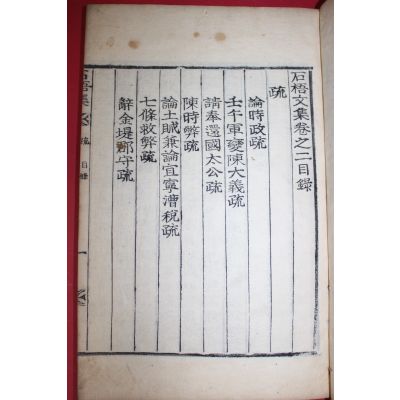 石梧文集卷之二目錄
疏
論時政疏
壬午軍變陳大義疏
請奉還國太公疏
陳時弊疏
論土賊兼論宜寧漕稅疏
七條救弊疏
辭金堤郡守疏
石梧集
疏 目錄
一